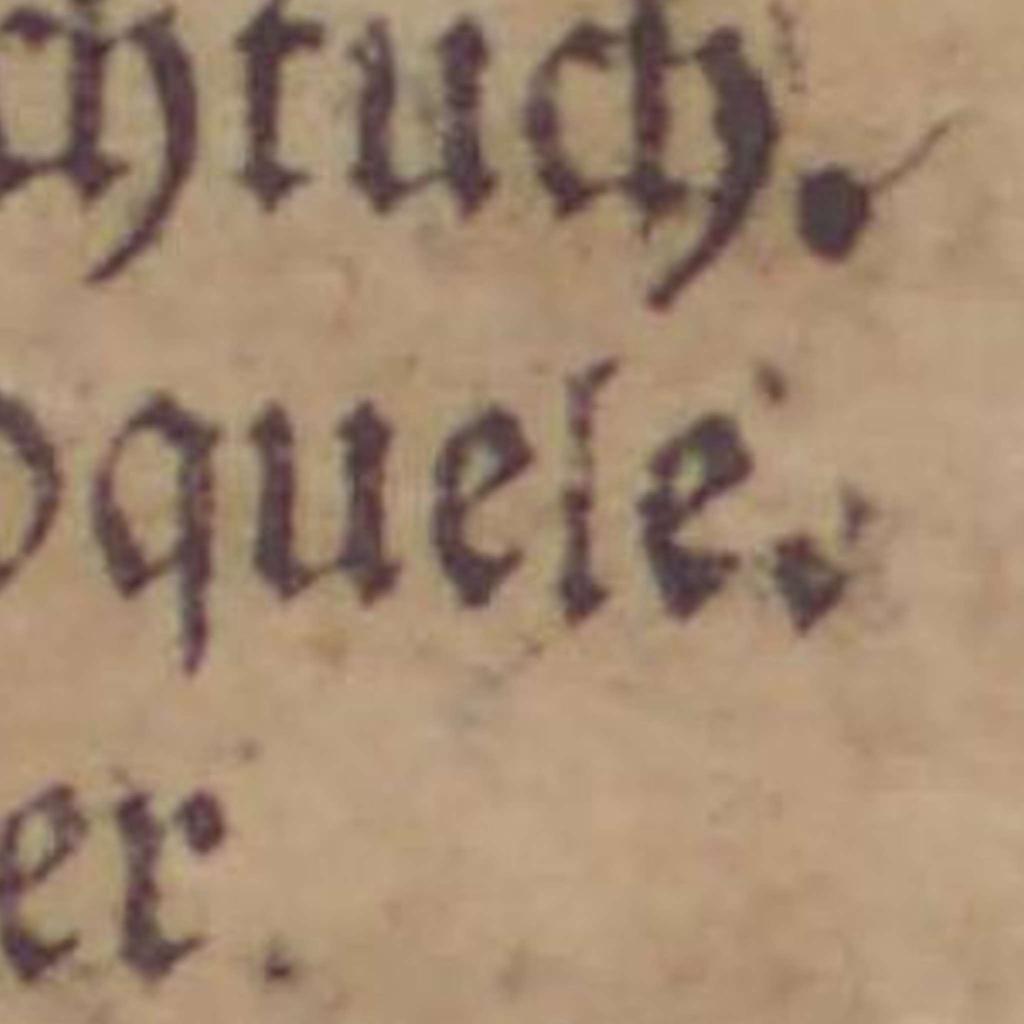 chtuch.
oquele.
er.